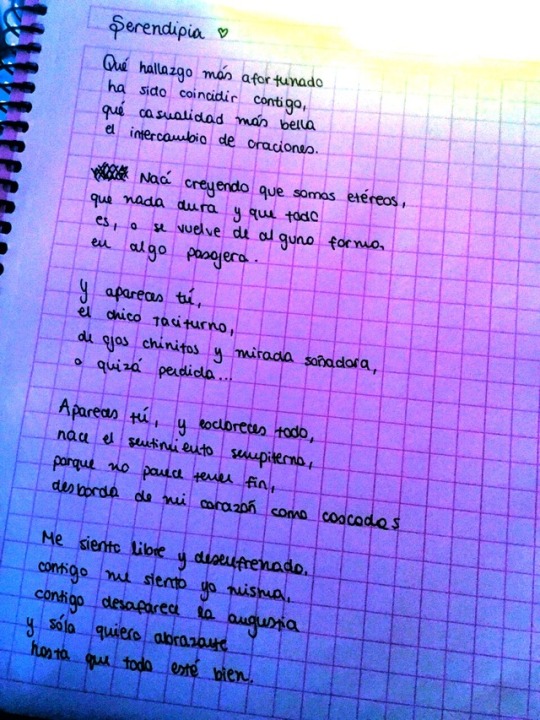 Serendipia
Qué hallazgo más afortunado
ha sido coincidir contigo,
qué casualidad más bella
el intercambio de oraciones.
Nací creyendo que somos etéreos,
que nada dura y que todo
es, o se vuelve de alguna forma,
en algo pasajera.
y apareces tú,
el chico taciturno,
de ojos chinitos y mirada soñadora,
o quizá perdida...
Apareces tú, y esclareces todo,
nace el sentimiento sempiterno,
porque no parece tener fin,
desborda de mi corazón como cascadas
Me siento libre y desenfrenada,
contigo me siento yo misma,
contigo desaparece la angustia
y sólo quiero abrazarte
hasta que todo esté bien.